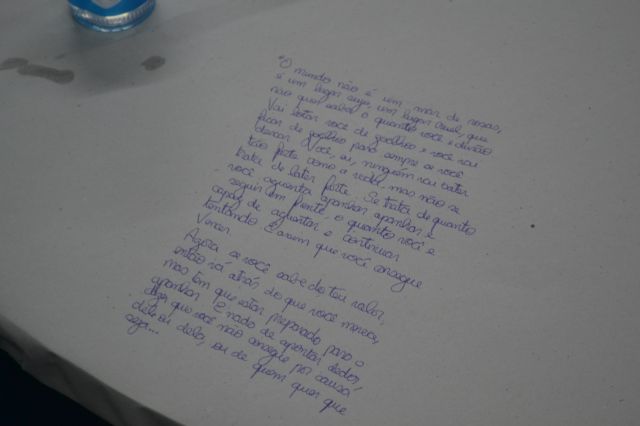 "O mundo não é um mar de rosas,
é um lugar sujo, um lugar cruel, que
não quer saber o quanto você é durão
Vai botar você de joelhos e você vai
ficar de joelhos para sempre se você
deixar. Você, eu, ninguém vai bater
tão forte como a vida, mas não se
trata de bater forte. Se trata de quanto
você aguenta apanhar apanhar e
seguir em frente, o quanto você é
capaz de aguentar e continuar
tentando. É assim que você consegue
Vencer.
Agora se você sabe do teu valor,
então vá atrás do que você merece,
mas tem que estar preparado para
apanhar. E nada de apontar dedos,
dizer que você não consegue por causa
dele ou dela, ou de quem quer que
seja...